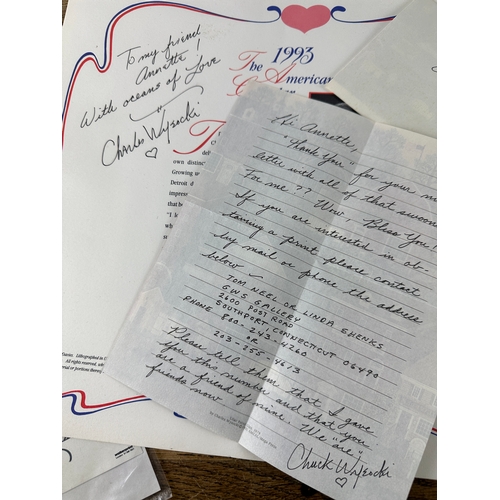 To my friend
Annette!
With oceans of Love
Charles Wysocki
The 1993
American
own distinc
Growing u
Detroit d
impres
that be
"I l
wh
Hi Annette,
"Thank You" for your
letter with all of that swoon
For me?? Wow. Bless You!
If you are interested in ob-
taining a print please contact
by mail or phone the address
below
TOM NEEL OR LINDA SHENKS
GWS GALLERY
2600 POST ROAD
SOUTHPORT, CONNECTICUT 06490
PHONE 800-243-4260
OR
203-255-4613
Please tell them that I gave
you this number and that you
are a friend of mine. We "are"
friends now
Chuck Wysocki
Lithographed in
All rights reserved,
or portions thereof